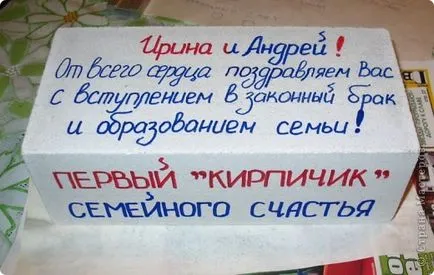 Ирина и Андрей!
От всего сердца поздравляем Вас
с вступлением в законный брак
и образованием семьи!
ПЕРВЫЙ "КИРПИЧИК"
СЕМЕЙНОГО СЧАСТЬЯ